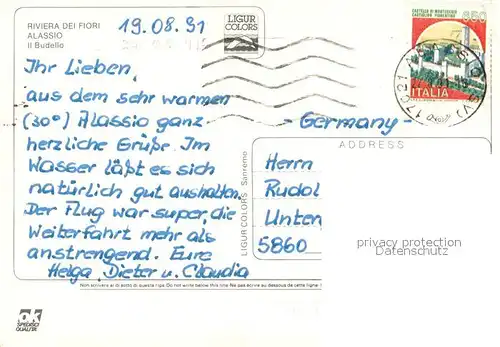 RIVIERA DEI FIORI
ALASSIO
Il Budello
19.08.91
LIGUR
COLORS
CASTELLO DI MONTECCHIO
CASTIGLION FIORENTINO
650
ITALIA
Ihr Lieben,
aus dem sehr warmen
(30°) Alassio ganz
herzliche Grüße. Im
Wasser läßt es sich
natürlich gut aushalten.
Der Flug war super, die
Weiterfahrt mehr als
anstrengend. Eure
Helga, Dieter u. Claudia
LIGUR COLORS Sanremo
- Germany -
ADDRESS
Herrn
Rudol
Unter
5860
privacy protection
Datenschutz
Non scrivere al di sotto di questa riga Do not write below this line Ne pas écrire au dessous de cette ligne
ok
SPEDISCI
QUALITÀ